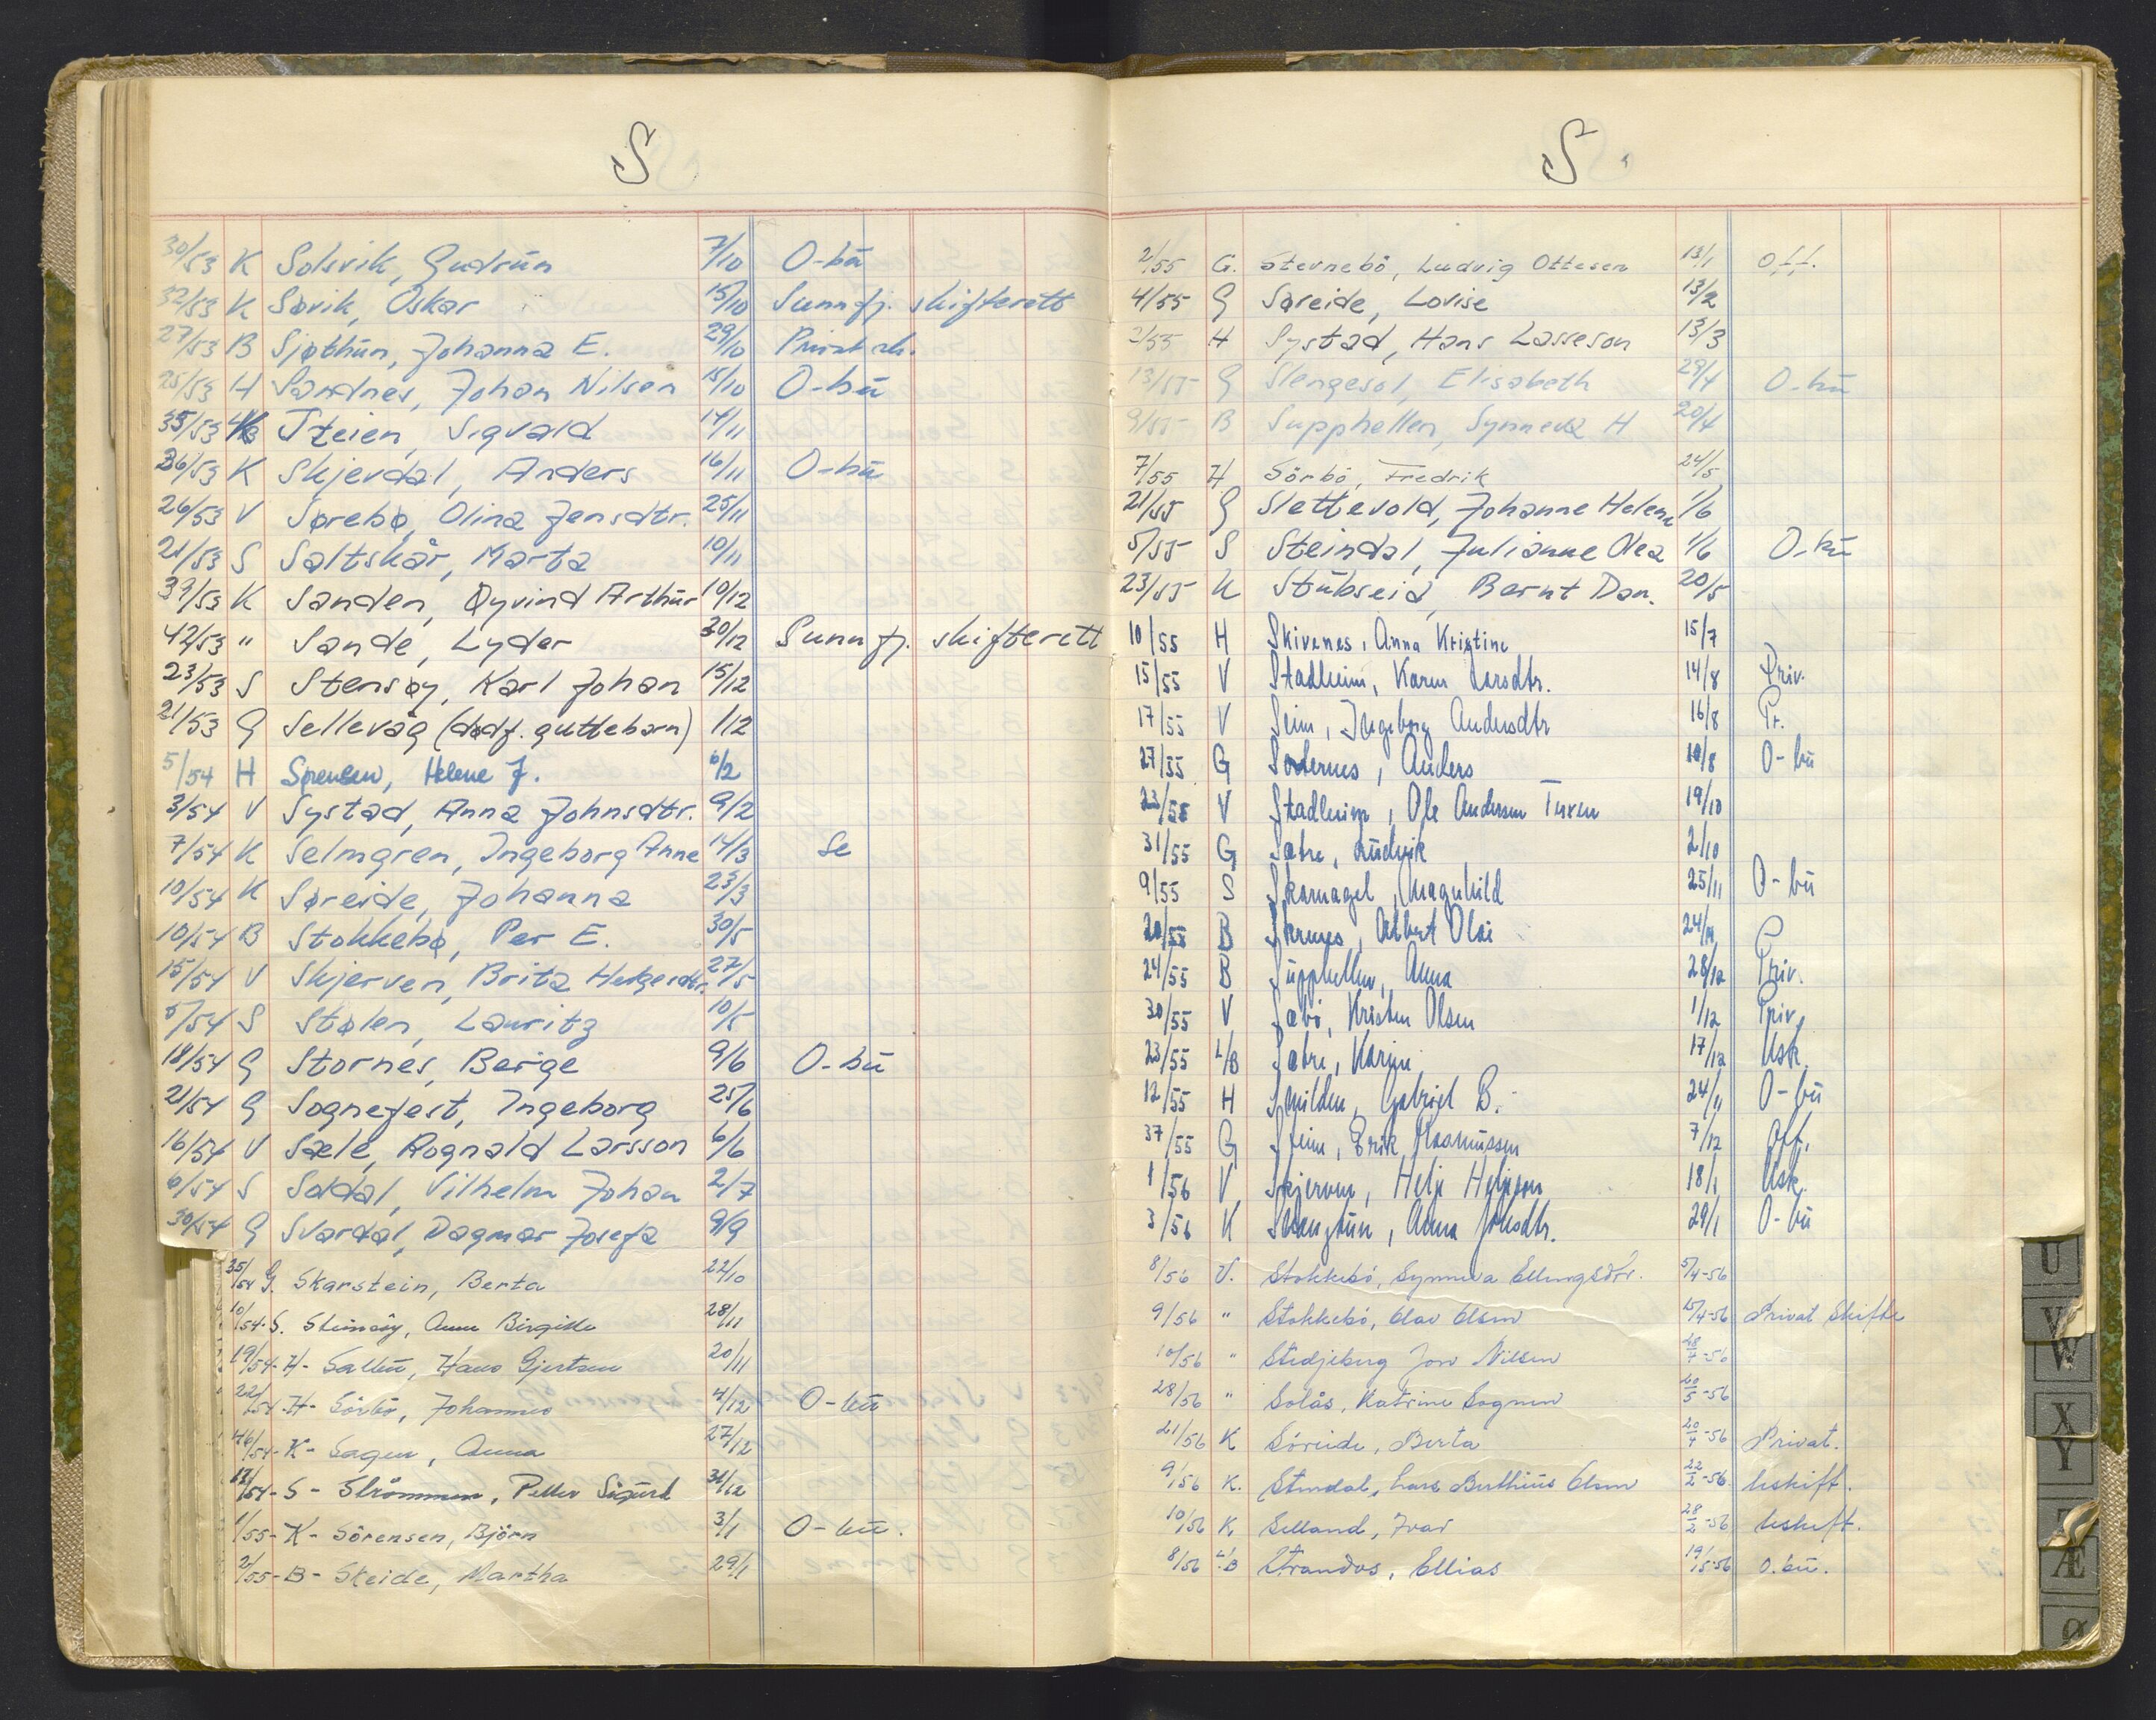 S
30/53 K Solsvik, Gudrun 7/10 O-bu
32/53 K Søvik, Oskar 15/10 Sunnfj. skifterett
27/53 B Sjøthun, Johanna E. 29/10 Privat sk.
25/53 H Sandnes, Johan Nilsen 15/10 O-bu
35/53 Steien, Sigvald 14/11
36/53 K Skjerdal, Anders 16/11 O-bu
26/53 V Sørebø, Olina Jensdtr. 25/11
21/53 S Saltskår, Marta 10/11
39/53 K Sanden, Øyvind Arthur 10/12
42/53 " Sande, Lyder 30/12 Sunnfj. skifterett
23/53 S Stensøy, Karl Johan 15/12
21/53 G Sellevåg (dødf. guttebarn) 1/12
5/54 H Sørensen, Helene J. 6/2
3/54 V Systad, Anna Johnsdtr. 9/2
7/54 K Selmgren, Ingeborg Anne 14/3 Se
10/54 K Søreide, Johanna 23/3
10/54 B Stokkebø, Per E. 30/5
15/54 V Skjerven, Brita Helgesdtr. 27/5
5/54 S Stølen, Lauritz 10/5
18/54 G Stornes, Berge 9/6 O-bu
21/54 G Sognefest, Ingeborg 25/6
16/54 V Sæle, Rognald Larsson 6/6
6/54 S Soldal, Vilhelm Johan 2/7
30/54 G Svardal, Dagmar Josefa 9/9
35/54 G. Skarstein, Berta 22/10
10/54-S. Steinsøy, Anne Birgitte 28/11
19/54-H- Hans Gjertsen 20/11
22/54-H- Sörbö, Johannes 4/12 O-bu
46/54-K- Sagen, Anna 27/12
12/54-S- Strömmen, Petter Sigurd 31/12
1/55-K- Sörensen, Björn 3/1 O-bu.
2/55-B- Skeide, Martha 29/1
S.
2/55 G. Stevnebö, Ludvig Ottesen 13/1 Off.
4/55 G Søreide, Lovise 13/2
2/55 H Systad, Hans Lasseson 13/3
13/55 G Slengesol, Elisabeth 29/4 O-bu
9/55 B Supphellen, Synneva H 20/4
7/55 H Sörbö, Fredrik 24/5
21/55 G Slettevold, Johanne Helene 1/6
5/55 S Steindal, Julianne Olea 1/6 O-bu
23/55 K Stubseid, Bernt Dan. 20/5
10/55 H Skivenes, Anna Kristine 15/7
15/55 V Stadheim, Karen Larsdtr. 14/8 Priv.
17/55 V Seim, Ingeborg Andersdtr 16/8 Pr.
27/55 G Anders 10/8 O-bu
23/55 V Stadheim, Ole Andersen Turen 19/10
31/55 G Sætre, Ludvik 2/10
9/55 S Skarnagel, Magnhild 25/11 O-bu
20/55 B Albert Olai P
24/55 B Supphellen, Anna 28/12 Priv.
30/55 V Sæbö, Kristen Olsen 1/12 Priv.
23/55 L/B Sætre, Karine 17/12 Usk.
12/55 H Smilden, Gabriel B. 24/11 O-bu
37/55 G Erik Rasmussen 7/12 Off.
1/56 V Skjerven, Helje Heljeson 18/1 Usk.
3/56 K Anna Johsdtr. 29/1 O-bu
8/56 V. Stokkebö, Synneva Ellingsdtr. 5/4-56
9/56 " Stokkebö, Olav Olsen 15/4-56 Privat Skifte
10/56 " Stedjeberg Jon Nilsen 28/4-56
28/56 " Solås, Katrine Sognen 20/5-56
21/56 K Söreide, Berta 20/4-56 Privat.
9/56 K. Lars Berthins Olsen 22/2-56 Uskift.
10/56 K Selland, Ivar 28/2-56 Uskift.
8/56 L.B Strandos, Ellias 19/5-56 O.bu.
U
V
W
X
Y
Æ
Ø